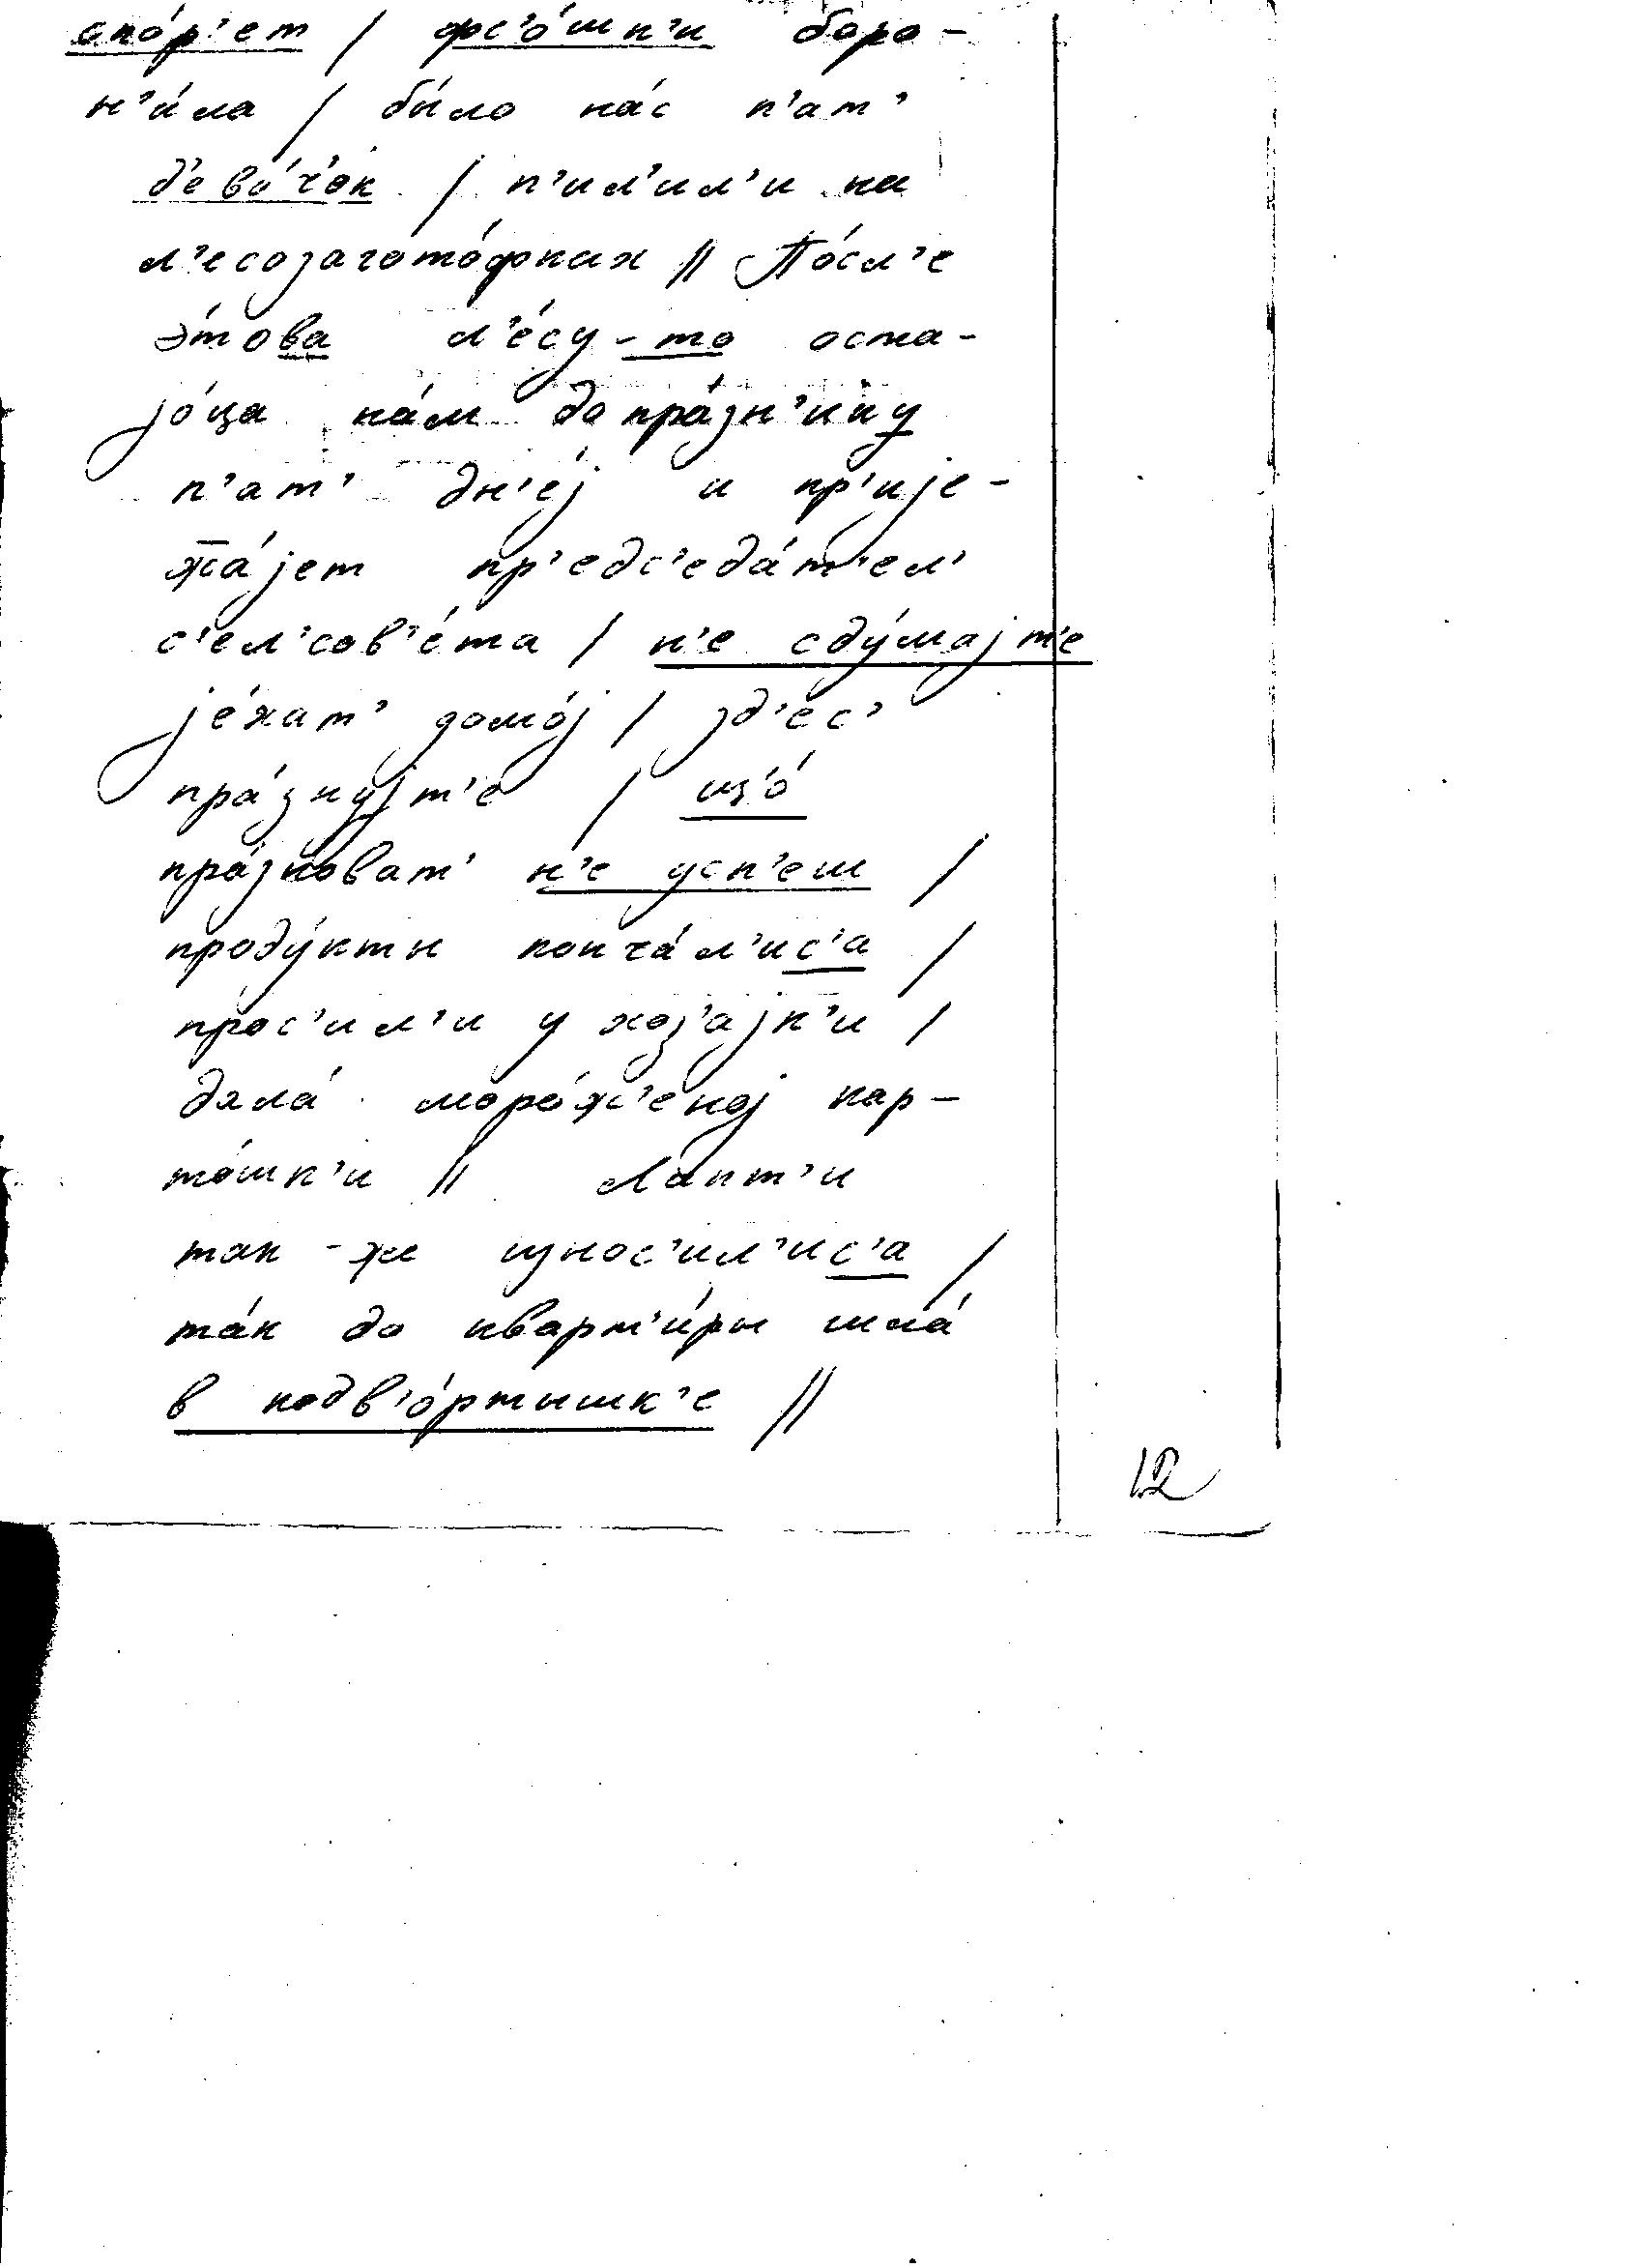 спо́р'ет / фс'о́шк'и боро-
н'и́ла / бы́ло на́с п'ат'
д'ево́ч'ок / п'ил'ил'и на
л'есозагото́фках // По́сл'е
э́това л'е́су-то оста-
jо́ца на́м до пра́зн'ику
п'ат' дн'е́j и пр'иjе-
жа́jет пр'едс'еда́т'ел'
с'ел'сов'е́та / н'е сду́маjт'е
jе́хат' домо́j / зд'ес'
пра́знуjт'е / що́
пра́зноват' н'е усп'еш /
проду́кты конча́л'ис'а /
прос'ил'и у хоз'аjк'и /
дала́ моро́ж'еноj кар-
то́шк'и // Лапт'и
так-жи износ'ил'ис'а /
та́к до кварт'и́ры шла́
в подв'о́ртышк'е //
12